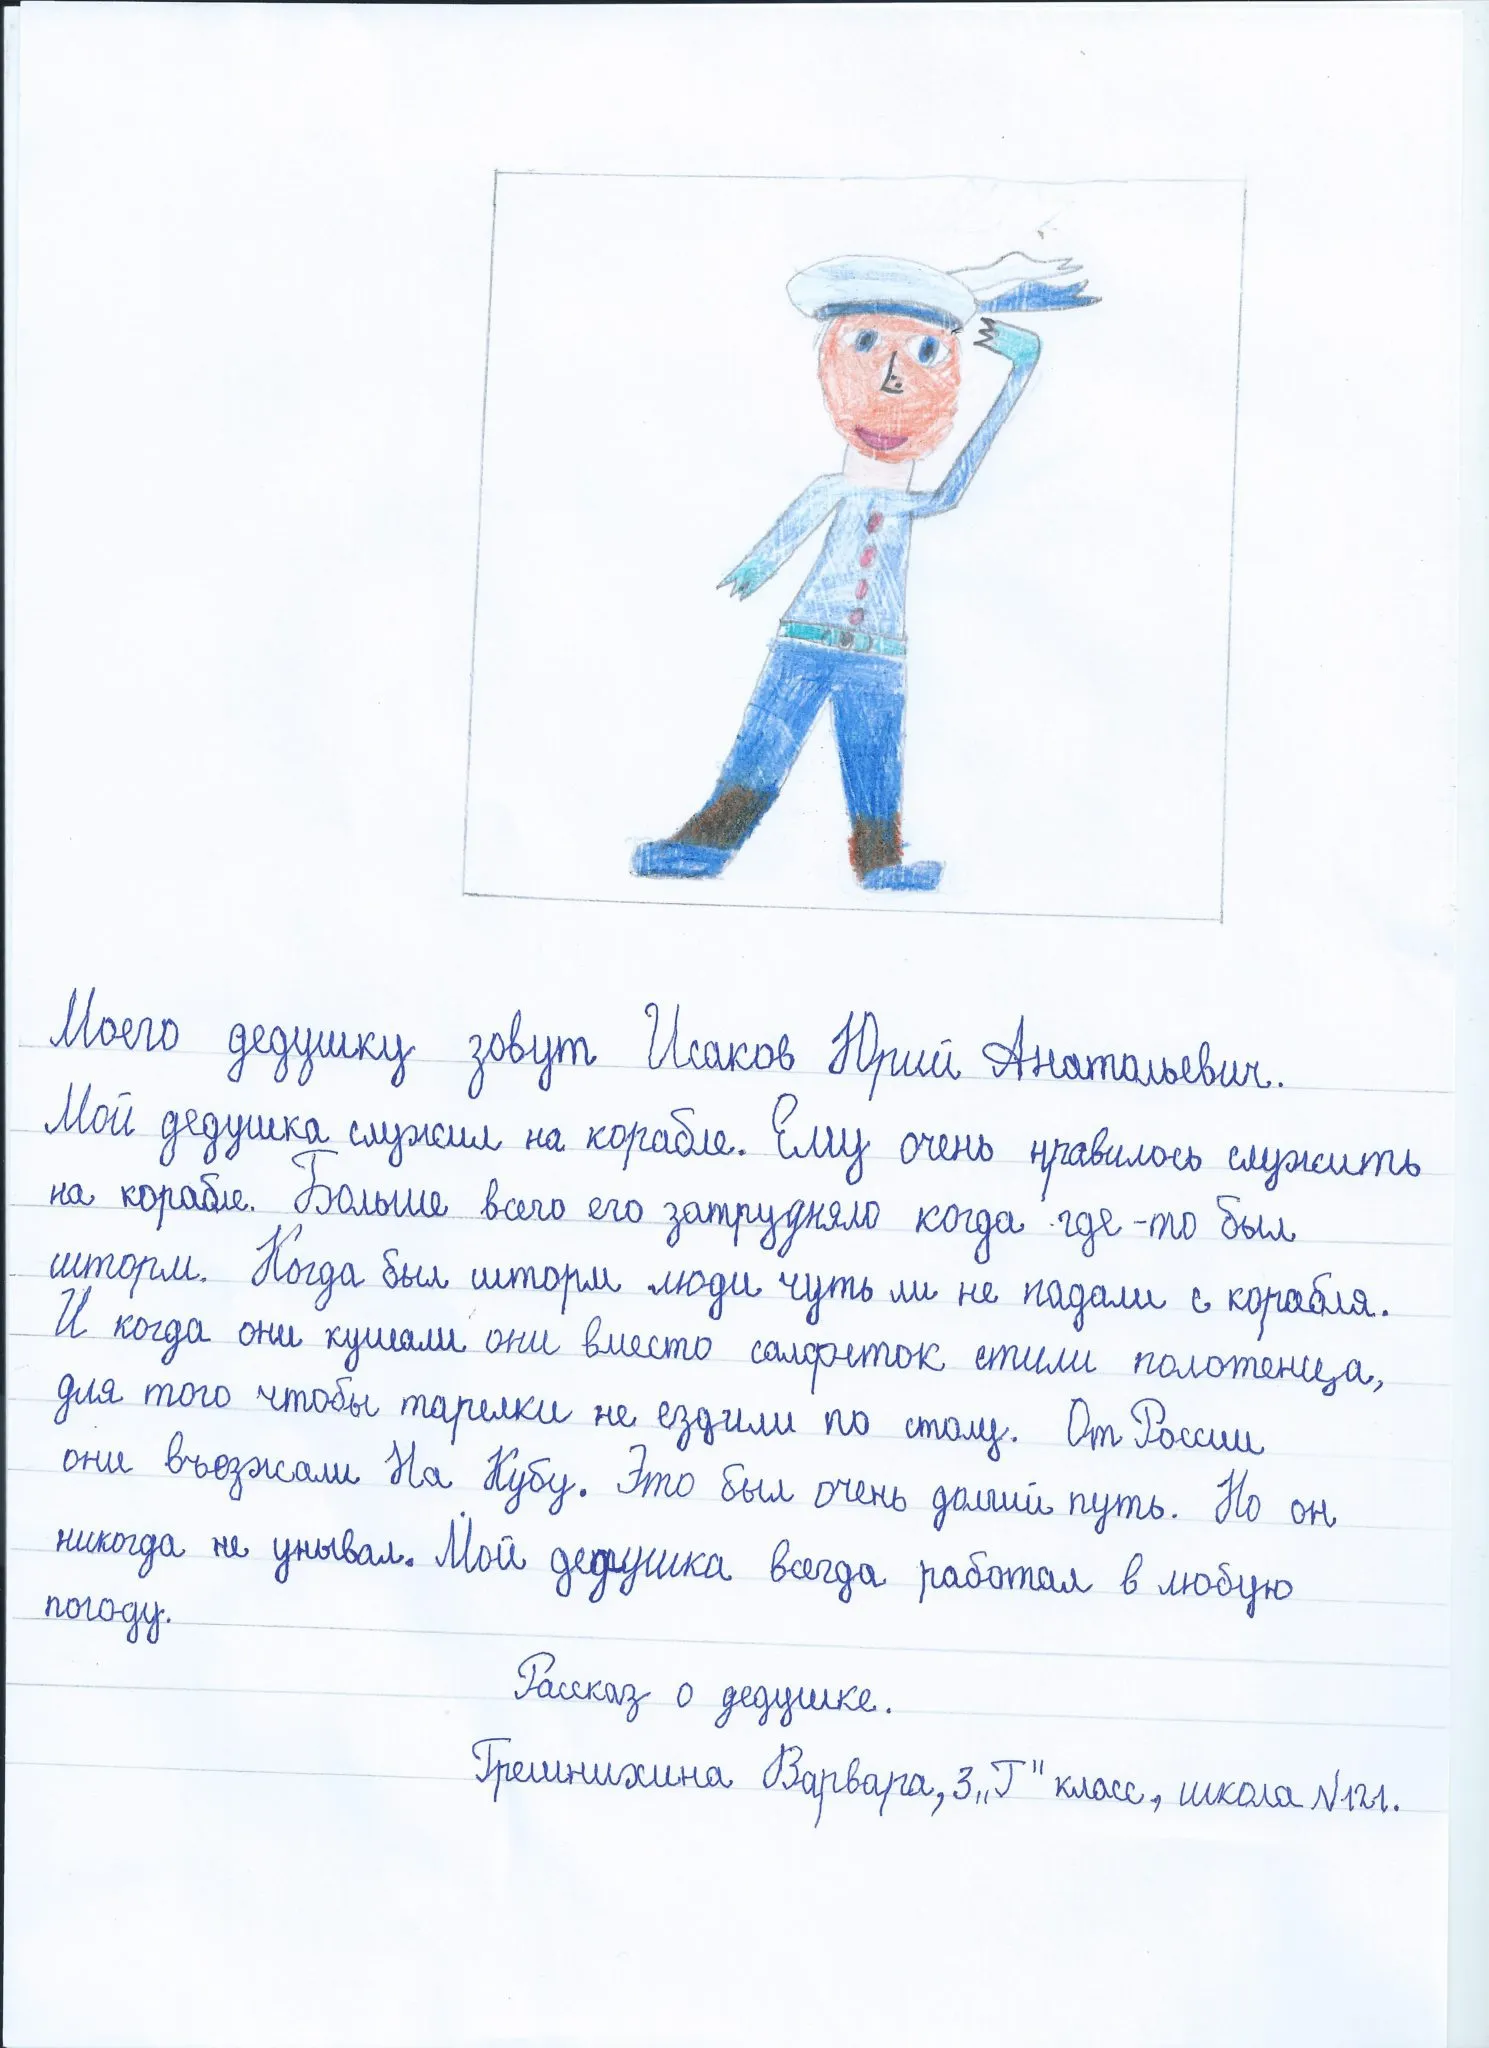 Моего дедушку зовут Исаков Юрий Анатольевич.
Мой дедушка служил на корабле. Ему очень нравилось служить
на корабле. Больше всего его затрудняло когда где-то был
шторм. Когда был шторм люди чуть ли не падали с корабля.
И когда они кушали они вместо салфеток стили полотенца,
для того чтобы тарелки не ездили по столу. От России
они въезжали На Кубу. Это был очень долгий путь. Но он
никогда не унывал. Мой дедушка всегда работал в любую
погоду.
Рассказ о дедушке.
Грешнихина Варвара, 3 „Г" класс, школа №121.